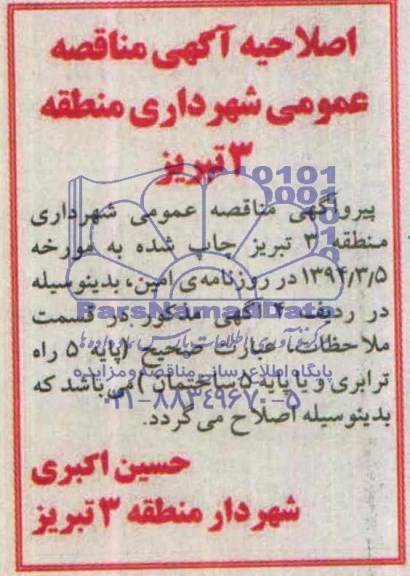 اصلاحیه آگهی مناقصه
عمومی شهرداری منطقه
۳ تبریز
پیروآگهی مناقصه عمومی شهرداری
منطقه ۳ تبریز چاپ شده به مورخه
۱۳۹۴/۳/۵ در روزنامه‌ی امین، بدینوسیله
در ردیف ۴ آگهی مذکور در قسمت
ملاحظات، عبارت صحیح (پایه ۵ راه
ترابری و یا پایه ۵ ساختمان) می باشد که
بدینوسیله اصلاح می گردد.
حسین اکبری
شهردار منطقه ۳ تبریز
ParsNamadData
پایگاه اطلاع رسانی مناقصه و مزایده
۰۲۱-۸۸۳۴۹۶۷۰-۵